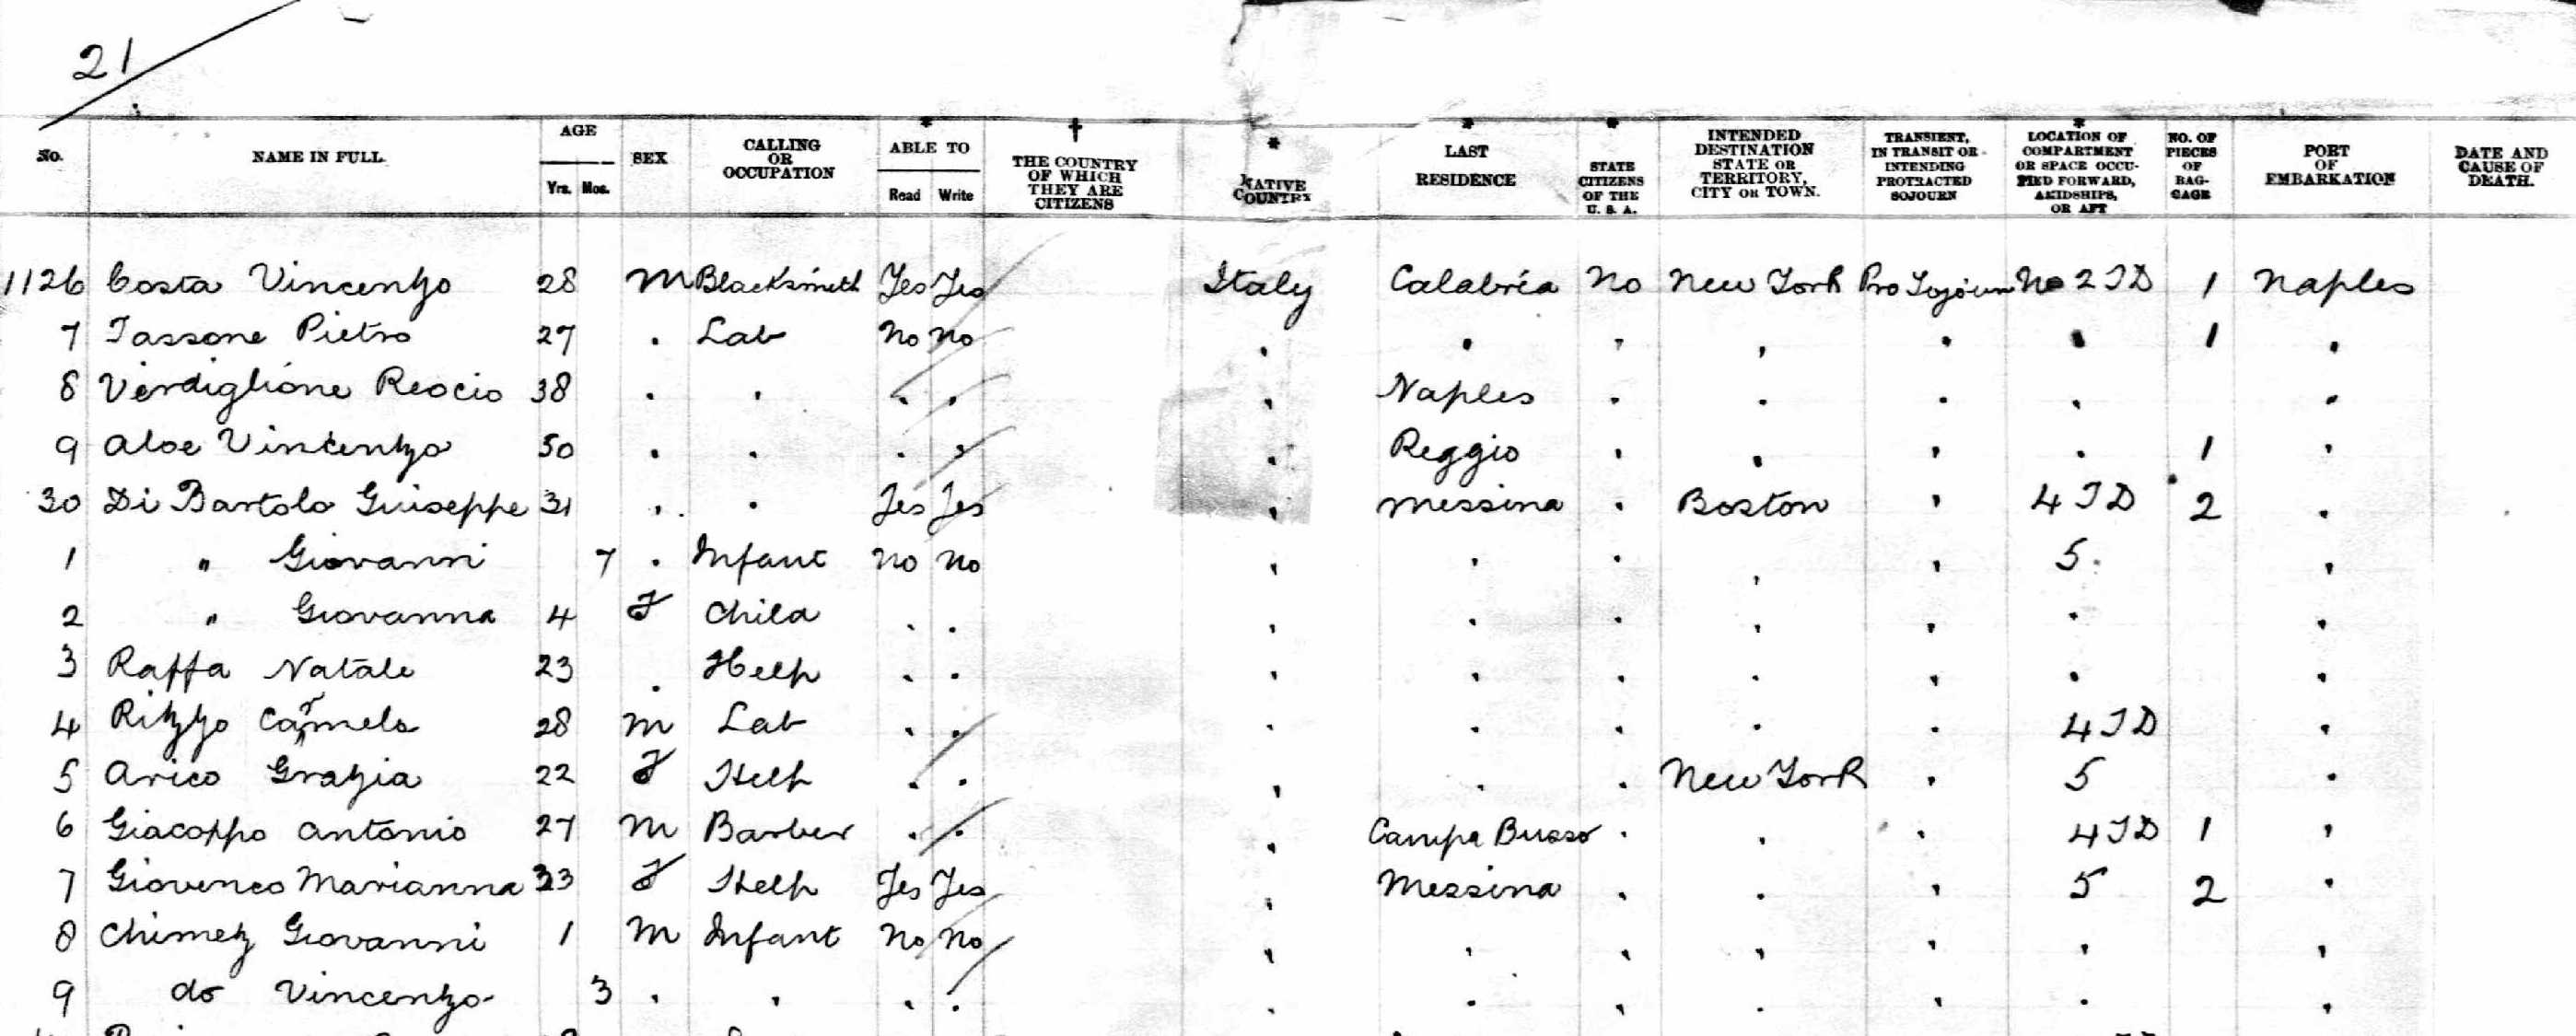 21
No. NAME IN FULL AGE Yrs. Mos. SEX CALLING OR OCCUPATION * ABLE TO Read Write † THE COUNTRY OF WHICH THEY ARE CITIZENS * NATIVE COUNTRY * LAST RESIDENCE * STATE CITIZENS OF THE U. S. A. INTENDED DESTINATION STATE OR TERRITORY, CITY OR TOWN. TRANSIENT, IN TRANSIT OR INTENDING PROTRACTED SOJOURN * LOCATION OF COMPARTMENT OR SPACE OCCU- PIED FORWARD, AMIDSHIPS, OR AFT NO. OF PIECES OF BAG- GAGE PORT OF EMBARKATION DATE AND CAUSE OF DEATH.
1126 Costa Vincenzo 28 M Blacksmith Yes Yes Italy Calabria No New York Pro Sojourn No 2 TD 1 Naples
7 Tassone Pietro 27 . Lab No No . . . . . . 1 .
8 Verdiglione Rocio 38 . . . . . Naples . . . . .
9 Aloe Vincenzo 50 . . . . . Reggio . . . . 1 .
30 Di Bartolo Guiseppe 31 . . Yes Yes . Messina . Boston . 4 TD 2 .
1 " Giovanni 7 . Infant No No . . . . . 5 .
2 " Giovanna 4 F Child . . . . . . . . .
3 Raffa Natale 23 . Help . . . . . . . . .
4 Rizzo Carmelo 28 M Lab . . . . . . . 4 TD .
5 Arico Grazia 22 F Help . . . . . New York . 5 .
6 Giacoppo Antonio 27 M Barber . . . Campo Busso . . . 4 TD 1 .
7 Giovenco Marianna 33 F Help Yes Yes . Messina . . . 5 2 .
8 Chimetz Giovanni 1 M Infant No No . . . . . . .
9 do Vincenzo 3 . . . . . . . . . . .